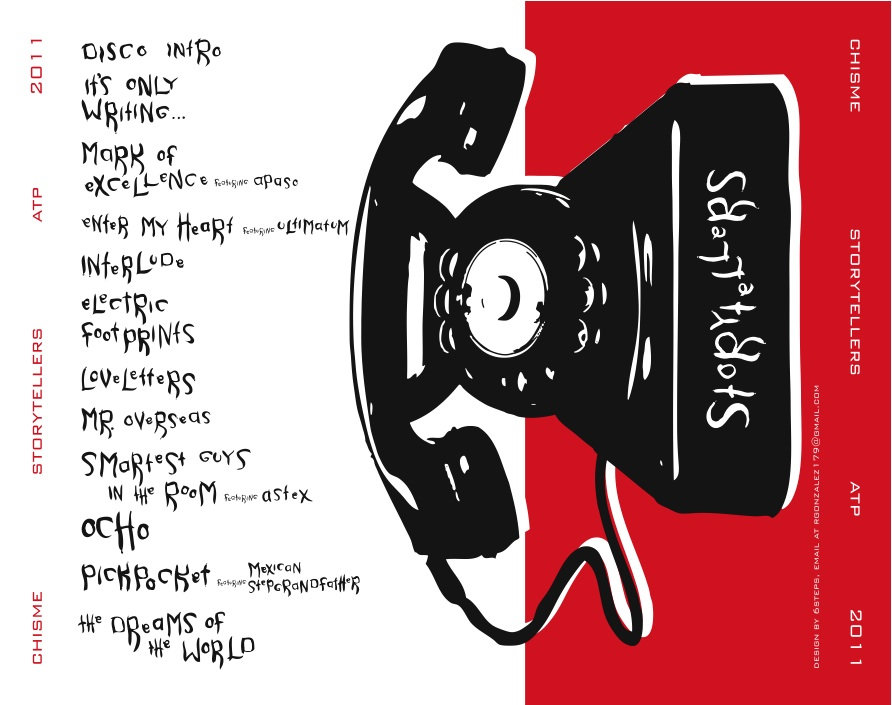 CHISME
STORYTELLERS
ATP
2011
DISCO INTRO
It's ONLY
WRITING...
MARK of
eXCeLLeNCe featuring apaso
enteR MY HeaRt featuring ULtIMatuM
INteRLUDe
eLectRIC
footPRINtS
LoveLetteRS
MR. oveRSeaS
SMaRteSt GUYS
IN the RooM featuring astex
OCHO
PICKPocKet featuring MexICaN
StePGRaNDfatHeR
the DReaMS of
the WoRLD
Storytellers
DESIGN BY 6STEPS, EMAIL AT RGONZALEZ179@GMAIL.COM
CHISME
STORYTELLERS
ATP
2011